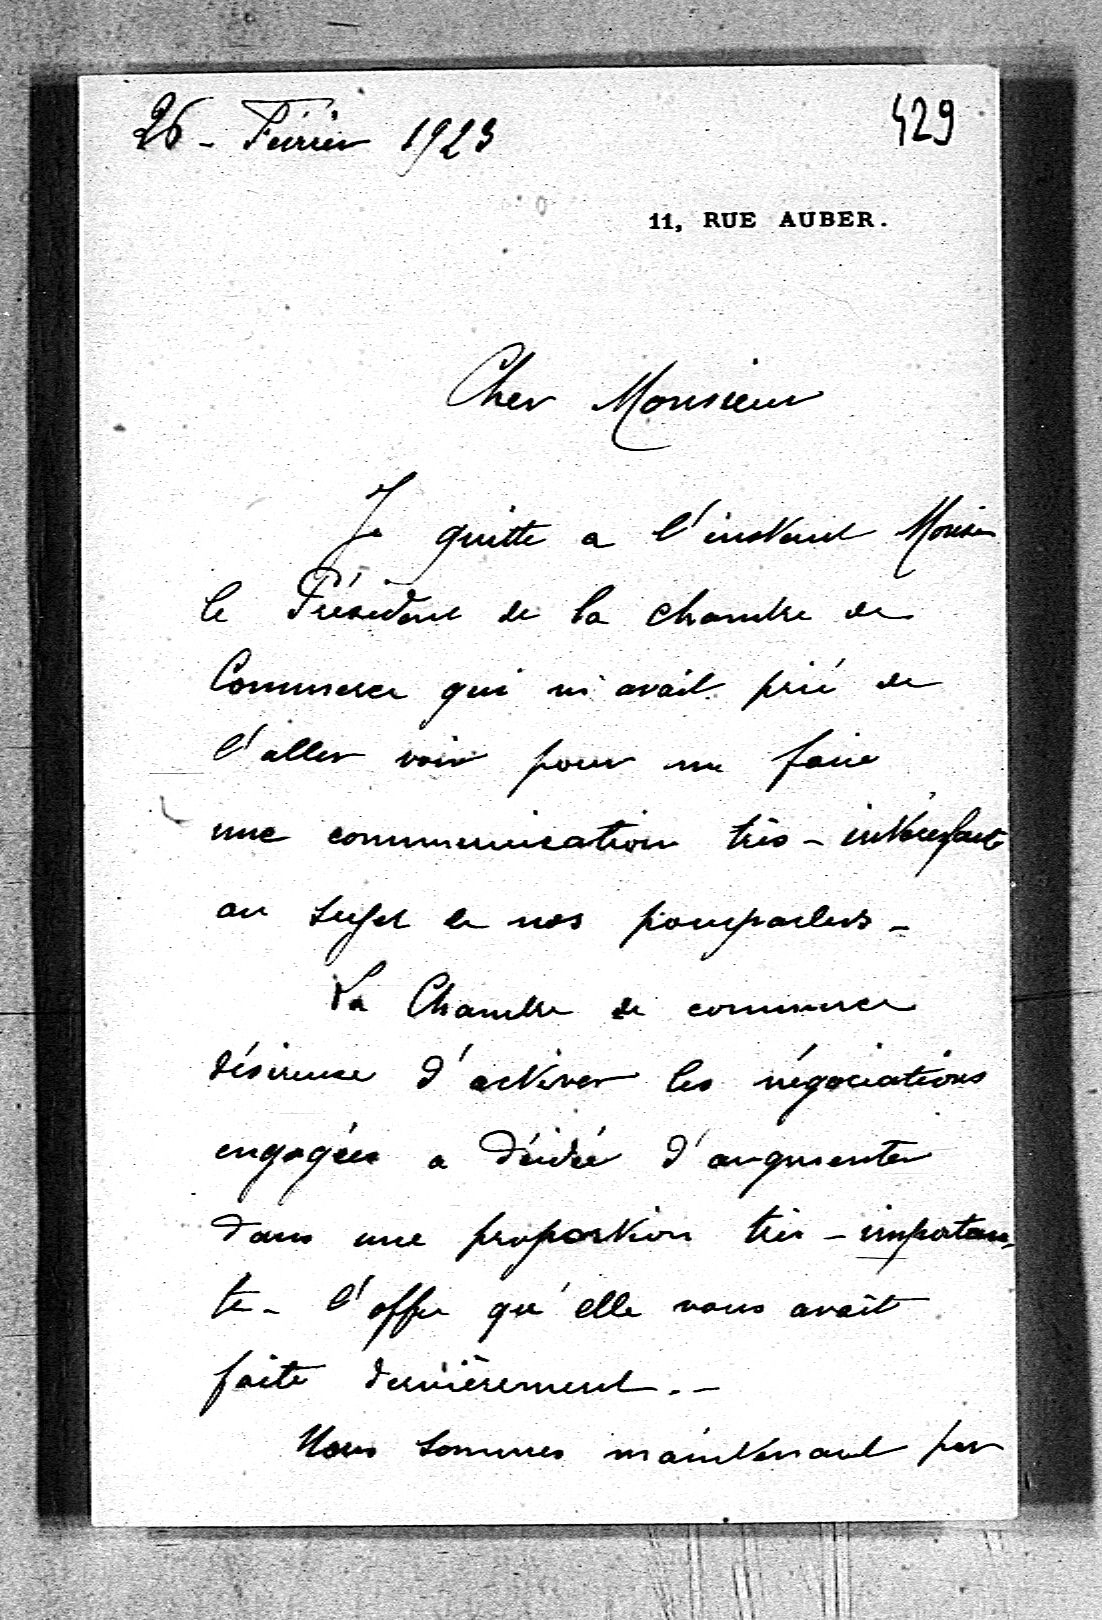 26 - Février 1923
429
11, RUE AUBER.
Cher Monsieur
Je quitte a l'instant Monsieur
le Président de la chambre de
Commerce qui m'avait prié de
l'aller voir pour me faire
une communication très - intéressante
au sujet de nos pourparlers -
La Chambre de commerce
désireuse d'activer les négociations
engagées a décidé d'augmenter
dans une proportion très - importan-
te - l'offre qu'elle vous avait
faite dernièrement . -
Nous sommes maintenant par